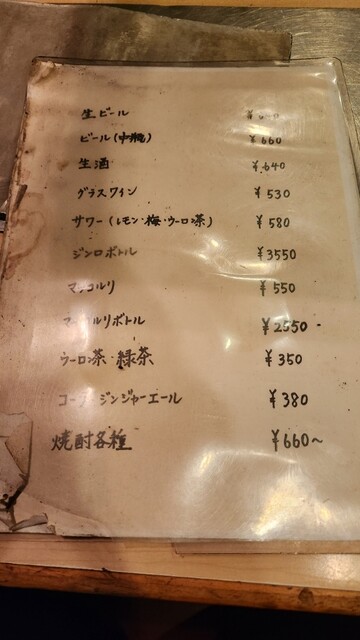 生ビール
ビール(中瓶) ¥660
生酒 ¥640
グラスワイン ¥530
サワー(レモン・梅・ウーロン茶) ¥580
ジンロボトル ¥3550
マッコルリ ¥550
¥2550
ウーロン茶・緑茶 ¥350
ジンジャーエール ¥380
焼酎各種 ¥660〜